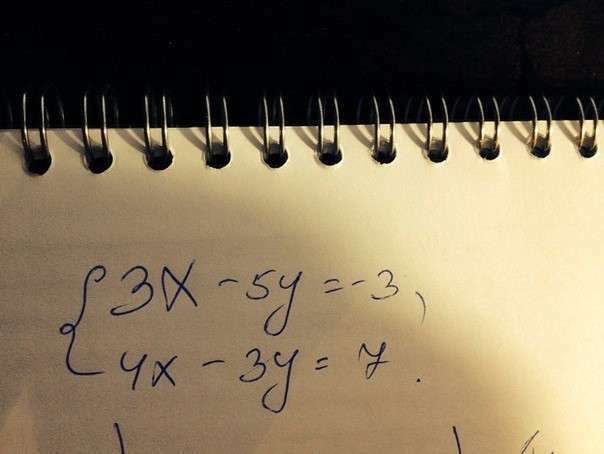 { 3x - 5y = -3,
4x - 3y = 7.